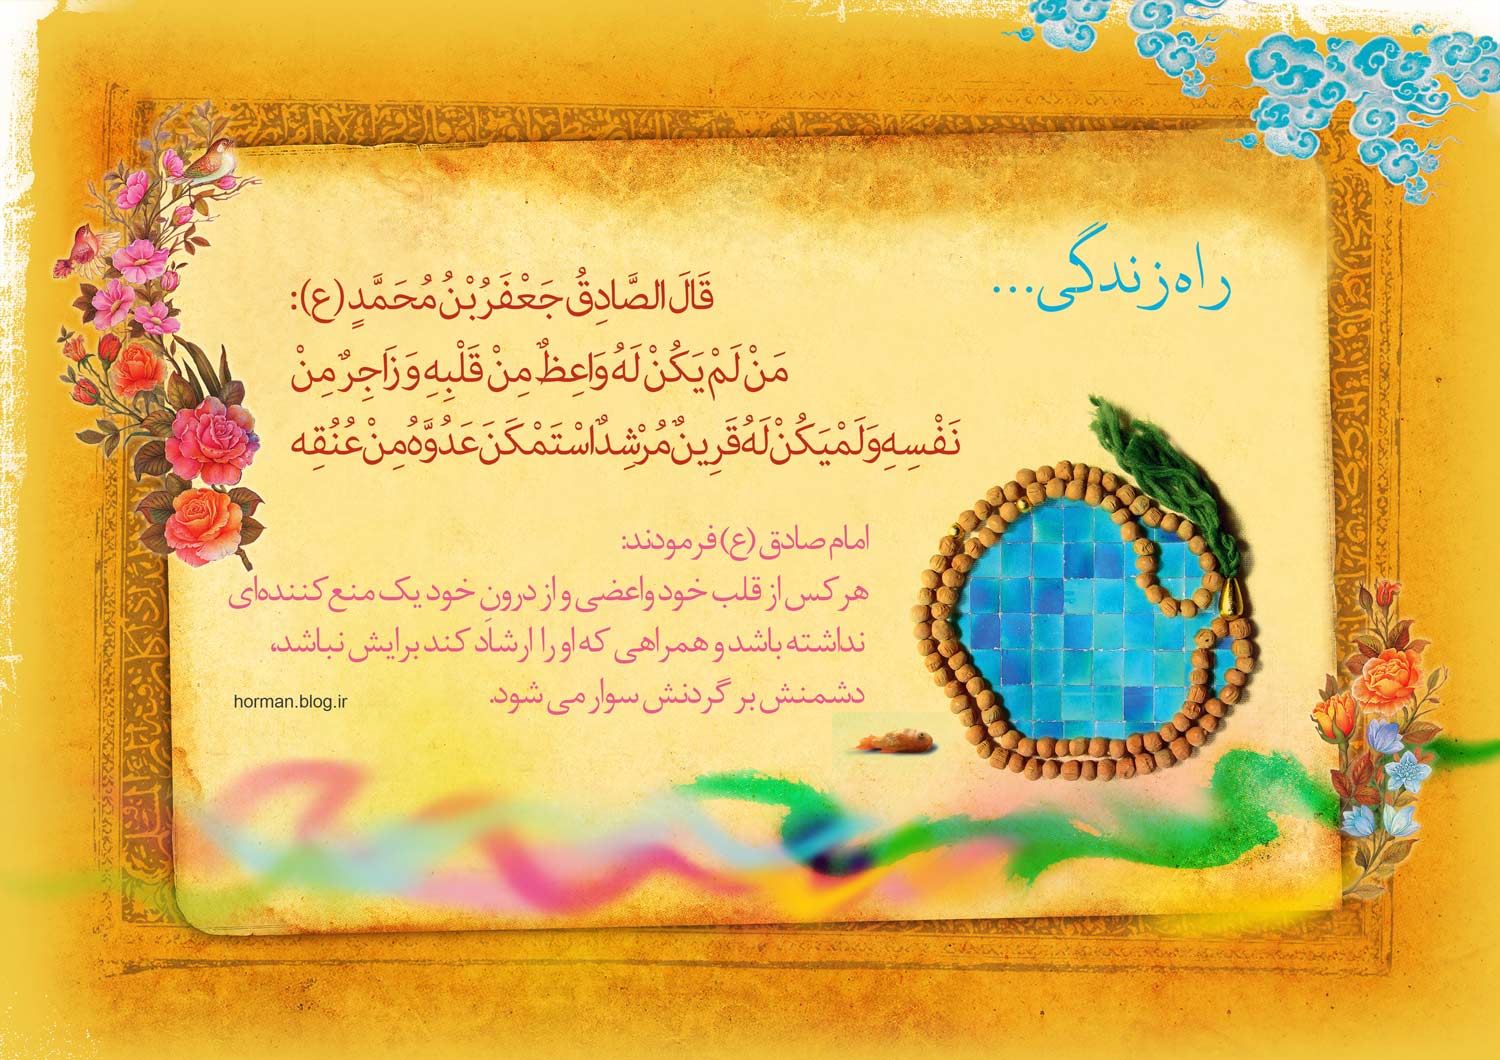 راه زندگی...
قَالَ الصَّادِقُ جَعْفَرُ بْنُ مُحَمَّدٍ (ع):
مَنْ لَمْ يَكُنْ لَهُ وَاعِظٌ مِنْ قَلْبِهِ وَ زَاجِرٌ مِنْ
نَفْسِهِ وَ لَمْ يَكُنْ لَهُ قَرِينٌ مُرْشِدٌ اسْتَمْكَنَ عَدُوُّهُ مِنْ عُنُقِه
امام صادق (ع) فرمودند:
هر کس از قلب خود واعضی و از درونِ خود یک منع کننده‌ای
نداشته باشد و همراهی که او را ارشاد کند برایش نباشد،
دشمنش بر گردنش سوار می شود.
horman.blog.ir